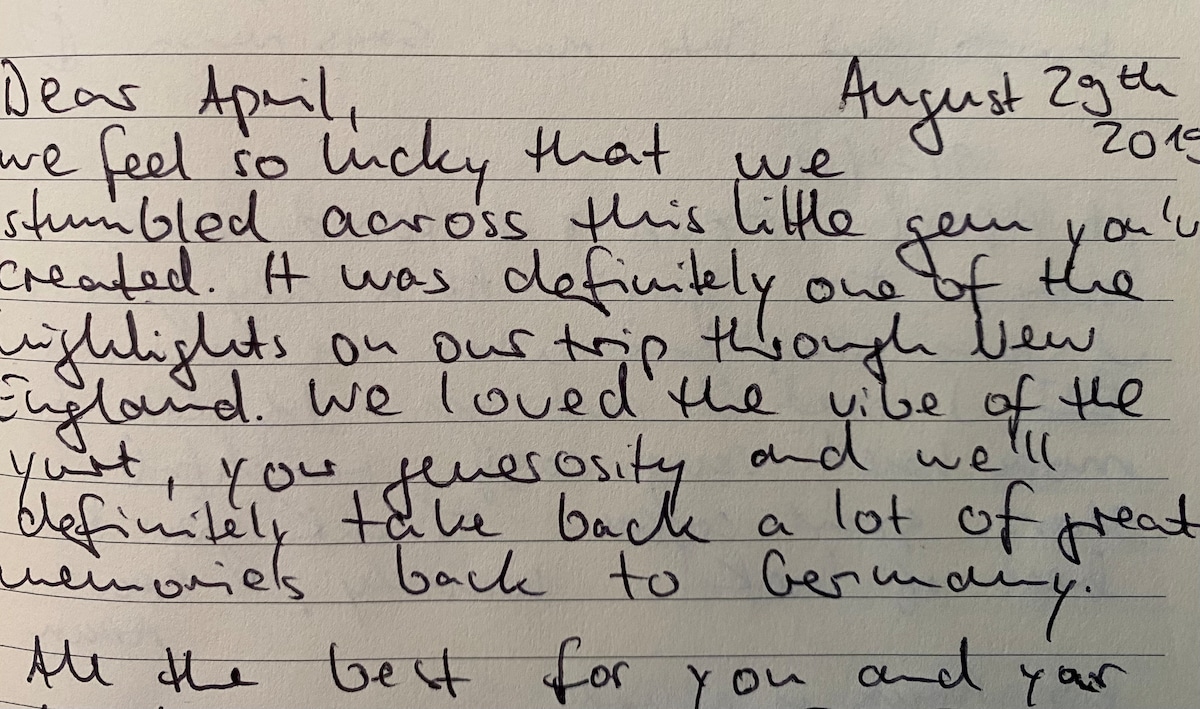 Dear April, August 29th
2019
we feel so lucky that we
stumbled across this little gem you'v
created. It was definitely one of the
highlights on our trip through New
England. We loved the vibe of the
yurt, your generosity and we'll
definitely take back a lot of great
memories back to Germany.
All the best for you and your